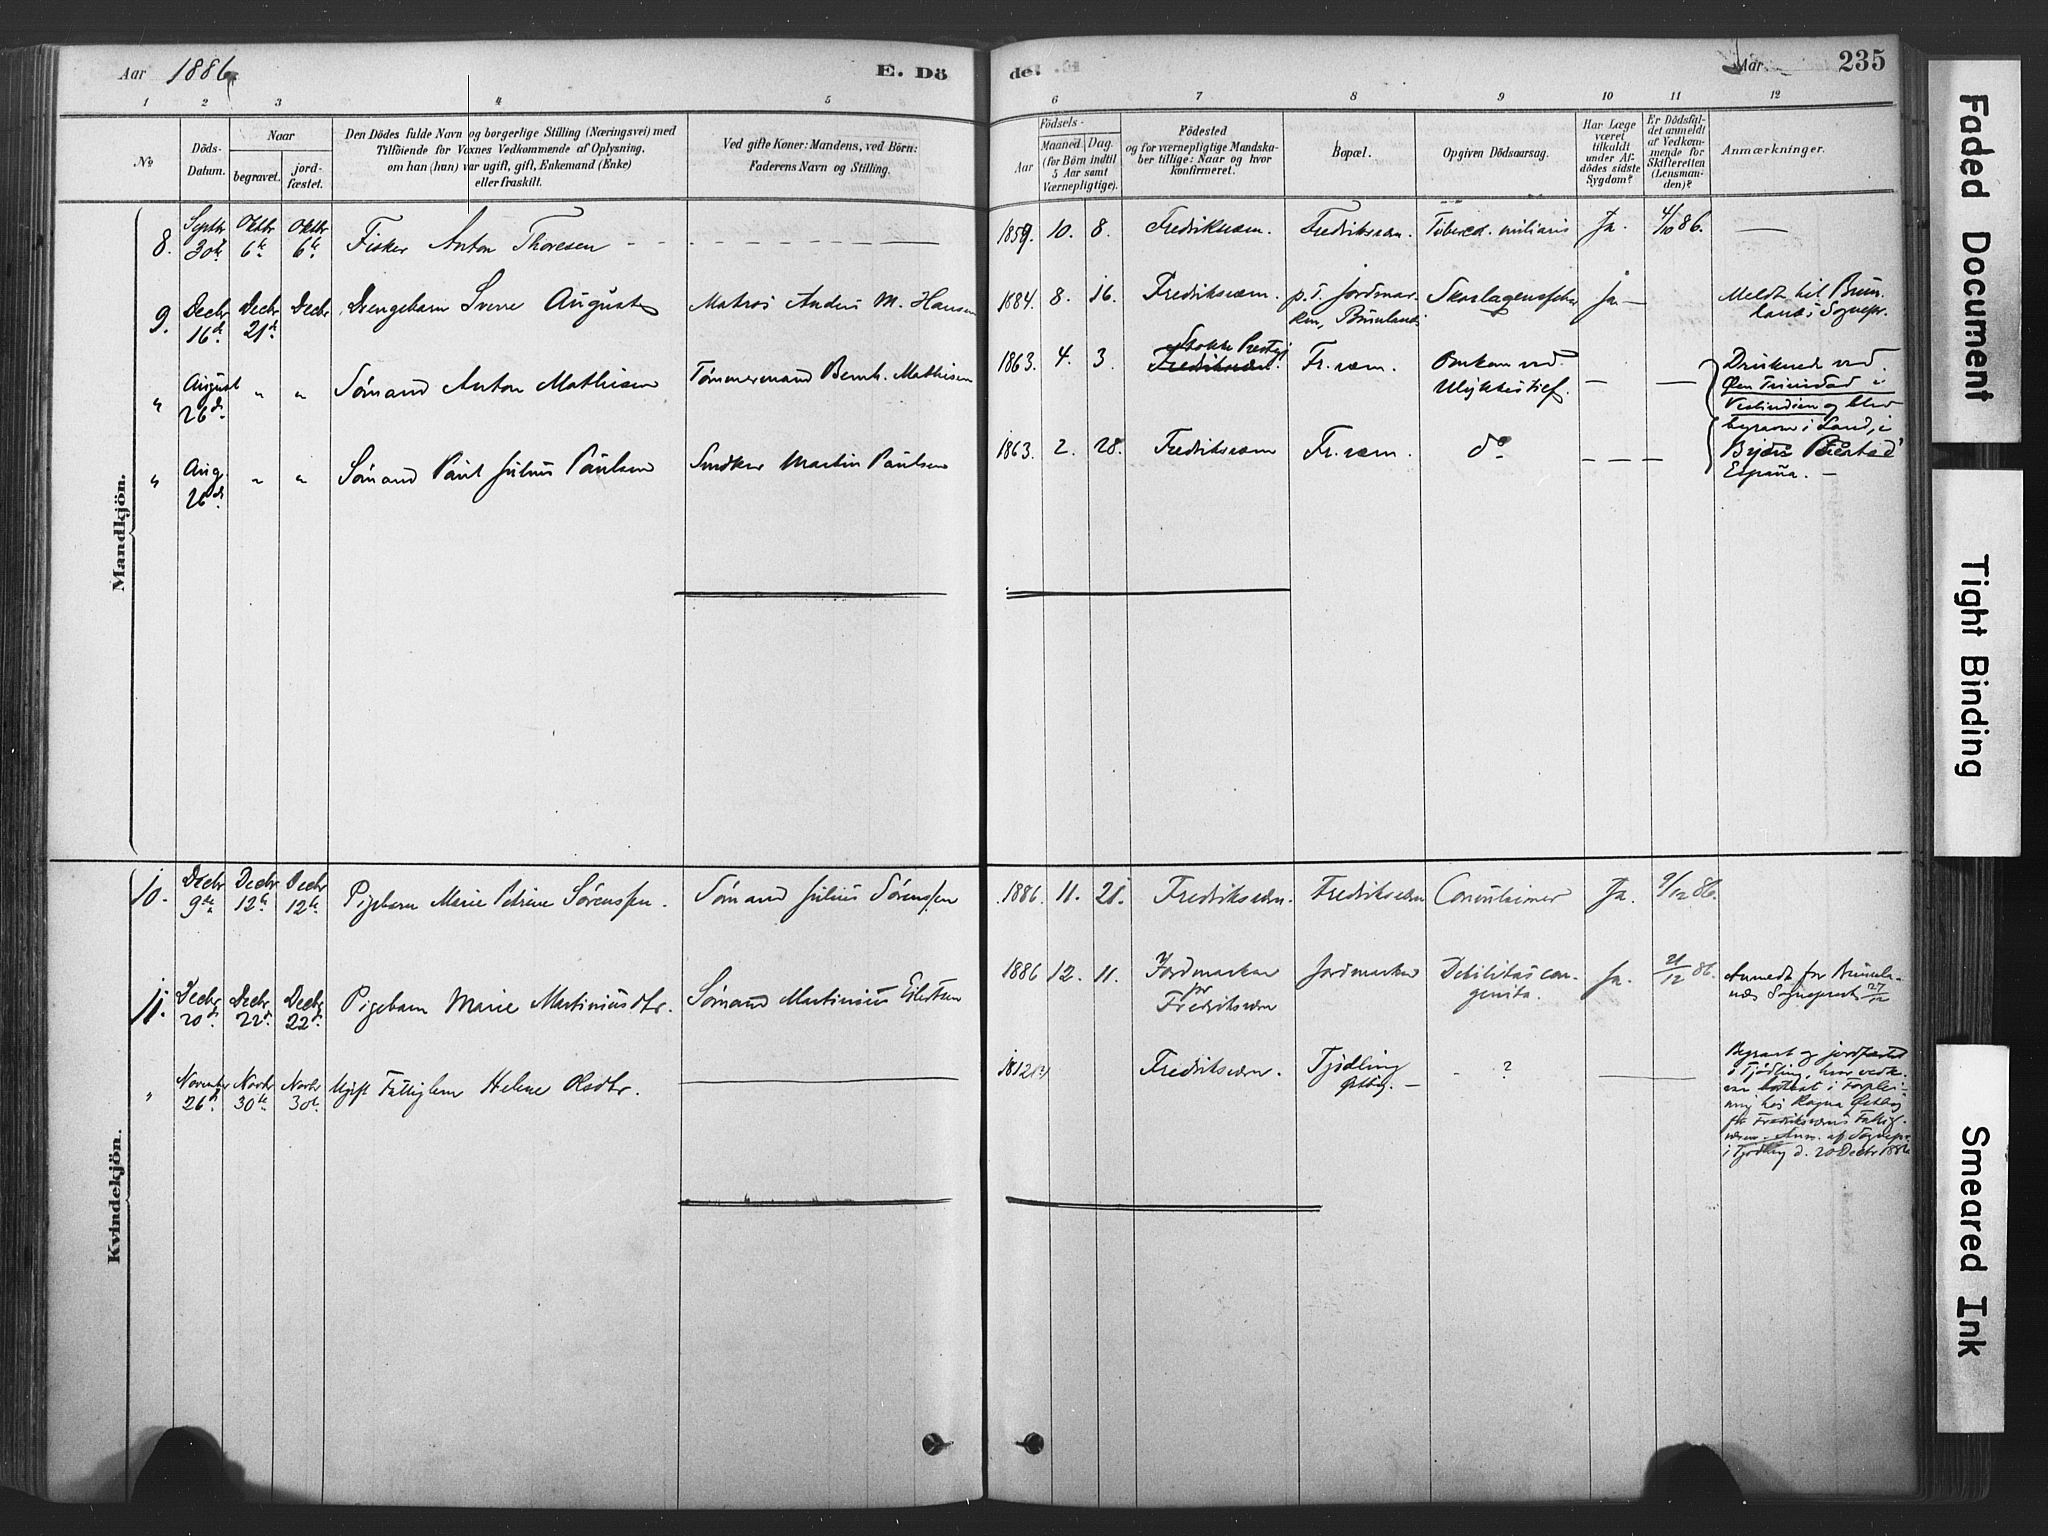 Aar 1886
E. Dö
de.
Aar
235
1 2 3 4 5 6 7 8 9 10 11 12
No
Döds-Datum.
Naar
begravet.
jord-fæstet.
Den Dödes fulde Navn og borgerlige Stilling (Næringsvei) med
Tilföiende for Voxnes Vedkommende af Oplysning,
om han (hun) var ugift, gift, Enkemand (Enke)
eller fraskilt.
Ved gifte Koner: Mandens, ved Börn:
Faderens Navn og Stilling.
Födsels-
Aar
Maaned. Dag.
(for Börn indtil
5 Aar samt
Værnepligtige).
Födested
og for værnepligtige Mandska-
ber tillige: Naar og hvor
konfirmeret.
Bopæl.
Opgiven Dödsaarsag.
Har Læge
været
tilkaldt
under Af-
dödes sidste
Sygdom?
Er Dödsfal-
det anmeldt
af Vedkom-
mende for
Skifteretten
(Lensman-
den)?
Anmærkninger.
Mandkjön.
8. Septbr 30te Oktbr 6te Oktbr 6te Fisker Anton Thoresen 1859. 10. 8. Fredriksværn. Fredriksværn. Tubercul. miliaris Ja. 4/10 86. —
9. Decbr 16de Decbr 21de Decbr Drengebarn Sverre August Matros Anders M. Hansen 1884. 8. 16. Fredriksværn. p.t. Jordmar-
ken, Brunlanes Skarlagensfeber Ja — Meldt til Brun-
lanes Sognepr.
" August 26de " " Sømand Anton Mathisen Tømmermand Bernh. Mathisen 1863. 4. 3. Stokke Prestegj
Fredriksværn. Fr.værn. Omkom ved
Ulykkestilf. — — Druknede ved
Øen Trinidad i
Vestindien og blev
begravne i Land, i
Byen
España. —
" Aug. 26de " " Sømand Paul Julius Paulsen Snedker Martin Paulsen 1863. 2. 28. Fredriksværn Fr.værn. do
Kvindekjön.
10. Decbr 9de Decbr 12te Decbr 12te Pigebarn Marie Petrine Sørenssen. Sømand Julius Sørenssen 1886. 11. 21. Fredriksværn. Fredriksværn Convulsioner Ja. 9/12 86.
11. Decbr 20de Decbr 22de Decbr 22de Pigebarn Marie Martiniusdtr. Sømand Martinius Eilertsen 1886 12. 11. Jordmarken
pr
Fredriksværn Jordmarken Debilitas con-
genita. Ja. 21/12 86. Anmeldt for Brunla-
nes Sogneprest 27/12
" Novembr 26de Novbr 30te Novbr 30te Ugift Fattiglem Helene Olsdtr. — 1812 Fredriksværn. Tjødling
Østby. — ? — Begravet og jordfæstet
i Tjødling, hvor vedk.
var bortsat i Forplei-
ning hos Ragna Østby
fra Fredriksværns Fattig-
væsen. Anm. af Sognepr.
i Tjødling d. 20 Decbr 1886
Faded Document
Tight Binding
Smeared Ink